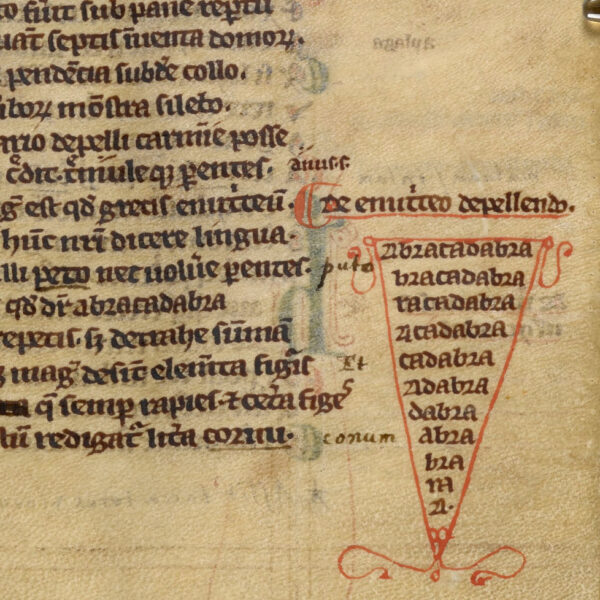 to fiūt sub pane reptū
uāt septis īuenta domorꝝ.
pendēcia subde collo.
iborꝝ mōstra silebo.
ario depelli carmīe posse
c̄dit tͥmuleqꝫ ꝑentes.
g̅ est qd̄ grecis emitͥteū.
hūc nr̄i dicere lingua.
lli peto nec uoluēe ꝑentes. puto
qd̄ dr̄ abracadabra
repetis. sꝫ detrahe sūmā
mag̅ desīt elem̄ta figͥs Et
q̄ semper rapies. ⁊ cet̄a fige
tū redigatͬ litͤa cornu. conum
De emitͥteo depellendo.
abracadabra
bracadabra
racadabra
acadabra
cadabra
adabra
dabra
abra
bra
ra
a.